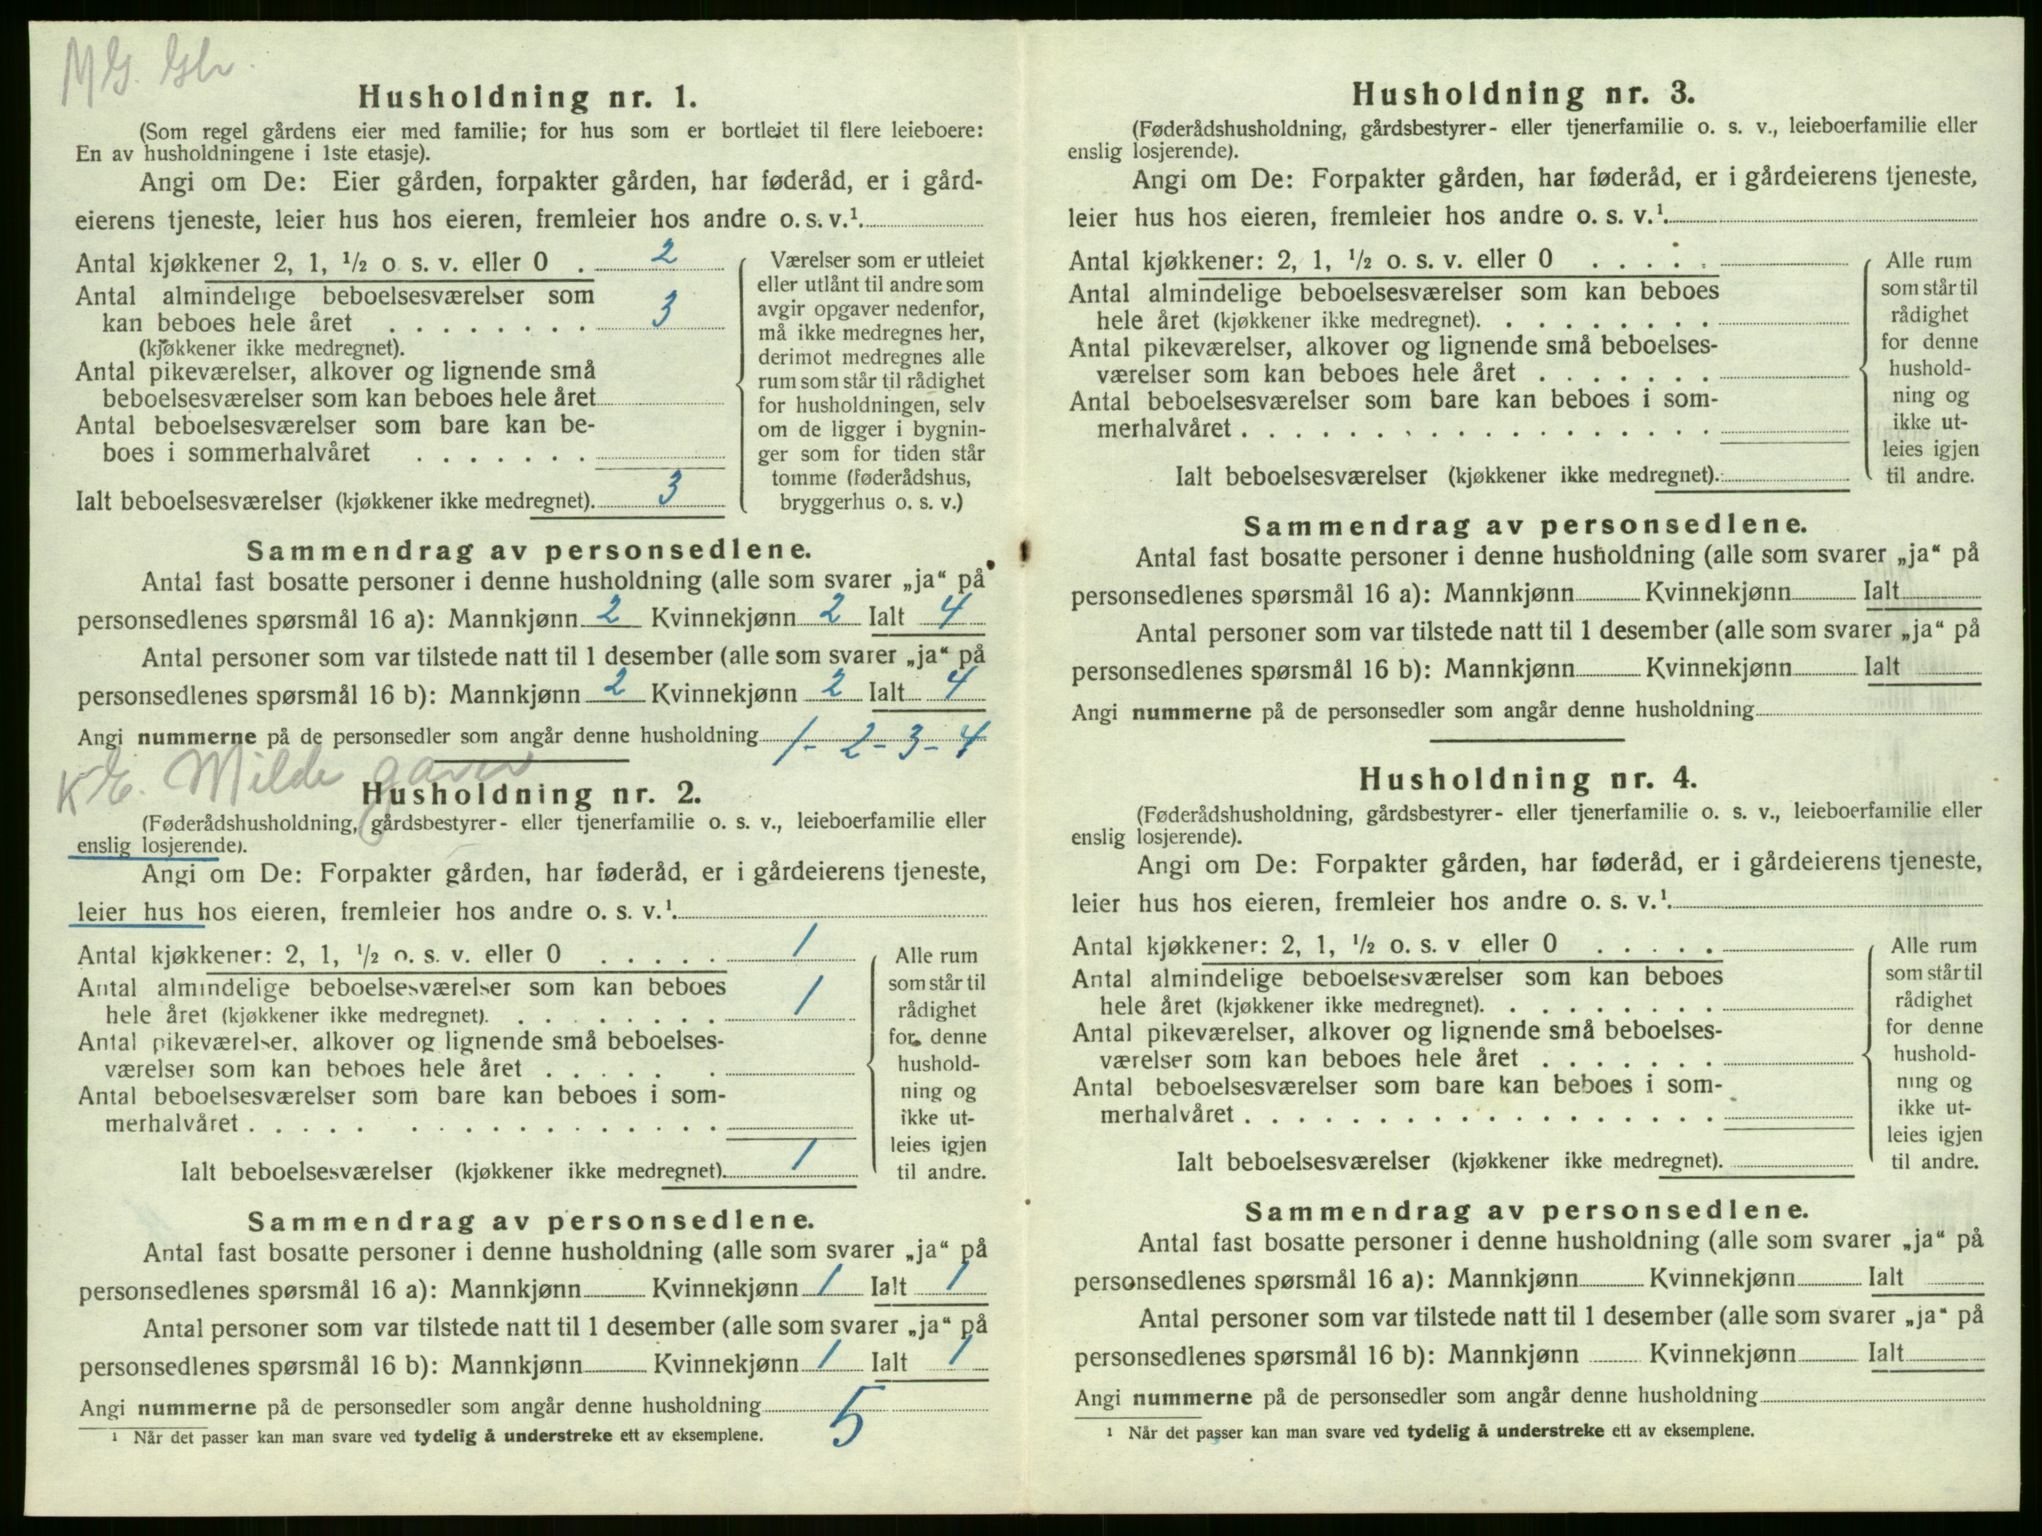 MG. Gbr.
Husholdning nr. 1.
(Som regel gårdens eier med familie; for hus som er bortleiet til flere leieboere:
En av husholdningene i 1ste etasje).
Angi om De: Eier gården, forpakter gården, har føderåd, er i gård-
eierens tjeneste, leier hus hos eieren, fremleier hos andre o. s. v.¹.
Antal kjøkkener 2, 1, ½ o s. v. eller 0 . 2
Antal almindelige beboelsesværelser som
kan beboes hele året . . . . . . . . 3
(kjøkkener ikke medregnet).
Antal pikeværelser, alkover og lignende små
beboelsesværelser som kan beboes hele året
Antal beboelsesværelser som bare kan be-
boes i sommerhalvåret . . . . . . .
Ialt beboelsesværelser (kjøkkener ikke medregnet). 3
Værelser som er utleiet
eller utlånt til andre som
avgir opgaver nedenfor,
må ikke medregnes her,
derimot medregnes alle
rum som står til rådighet
for husholdningen, selv
om de ligger i bygnin-
ger som for tiden står
tomme (føderådshus,
bryggerhus o. s. v.)
Sammendrag av personsedlene.
Antal fast bosatte personer i denne husholdning (alle som svarer „ja“ på
personsedlenes spørsmål 16 a): Mannkjønn 2 Kvinnekjønn 2 Ialt 4
Antal personer som var tilstede natt til 1 desember (alle som svarer „ja“ på
personsedlenes spørsmål 16 b): Mannkjønn 2 Kvinnekjønn 2 Ialt 4
Angi nummerne på de personsedler som angår denne husholdning 1-2-3-4
K E. Milde
Husholdning nr. 2.
(Føderådshusholdning, gårdsbestyrer- eller tjenerfamilie o. s. v., leieboerfamilie eller
enslig losjerende).
Angi om De: Forpakter gården, har føderåd, er i gårdeierens tjeneste,
leier hus hos eieren, fremleier hos andre o. s. v.¹.
Antal kjøkkener: 2, 1, ½ o. s. v. eller 0 . . . . . 1
Antal almindelige beboelsesværelser som kan beboes
hele året (kjøkkener ikke medregnet). . . . . . . . 1
Antal pikeværelser, alkover og lignende små beboelses-
værelser som kan beboes hele året . . . . . .
Antal beboelsesværelser som bare kan beboes i som-
merhalvåret . . . . . . . . . . . . . . . .
Ialt beboelsesværelser (kjøkkener ikke medregnet). 1
Alle rum
som står til
rådighet
for denne
hushold-
ning og
ikke ut-
leies igjen
til andre.
Sammendrag av personsedlene.
Antal fast bosatte personer i denne husholdning (alle som svarer „ja“ på
personsedlenes spørsmål 16 a): Mannkjønn Kvinnekjønn 1 Ialt 1
Antal personer som var tilstede natt til 1 desember (alle som svarer „ja“ på
personsedlenes spørsmål 16 b): Mannkjønn Kvinnekjønn 1 Ialt 1
Angi nummerne på de personsedler som angår denne husholdning 5
¹ Når det passer kan man svare ved tydelig å understreke ett av eksemplene.
Husholdning nr. 3.
(Føderådshusholdning, gårdsbestyrer- eller tjenerfamilie o. s. v., leieboerfamilie eller
enslig losjerende).
Angi om De: Forpakter gården, har føderåd, er i gårdeierens tjeneste,
leier hus hos eieren, fremleier hos andre o. s. v.¹.
Antal kjøkkener: 2, 1, ½ o. s. v. eller 0 . . . . .
Antal almindelige beboelsesværelser som kan beboes
hele året (kjøkkener ikke medregnet). . . . . . . .
Antal pikeværelser, alkover og lignende små beboelses-
værelser som kan beboes hele året . . . . . . .
Antal beboelsesværelser som bare kan beboes i som-
merhalvåret . . . . . . . . . . . . . . . . . .
Ialt beboelsesværelser (kjøkkener ikke medregnet).
Alle rum
som står til
rådighet
for denne
hushold-
ning og
ikke ut-
leies igjen
til andre.
Sammendrag av personsedlene.
Antal fast bosatte personer i denne husholdning (alle som svarer „ja“ på
personsedlenes spørsmål 16 a): Mannkjønn Kvinnekjønn Ialt
Antal personer som var tilstede natt til 1 desember (alle som svarer „ja“ på
personsedlenes spørsmål 16 b): Mannkjønn Kvinnekjønn Ialt
Angi nummerne på de personsedler som angår denne husholdning
Husholdning nr. 4.
(Føderådshusholdning, gårdsbestyrer- eller tjenerfamilie o. s. v., leieboerfamilie eller
enslig losjerende).
Angi om De: Forpakter gården, har føderåd, er i gårdeierens tjeneste,
leier hus hos eieren, fremleier hos andre o. s. v.¹.
Antal kjøkkener: 2, 1, ½ o. s. v eller 0 . . . . .
Antal almindelige beboelsesværelser som kan beboes
hele året (kjøkkener ikke medregnet). . . . . . . .
Antal pikeværelser, alkover og lignende små beboelses-
værelser som kan beboes hele året . . . . . . .
Antal beboelsesværelser som bare kan beboes i som-
merhalvåret . . . . . . . . . . . . . . . . . .
Ialt beboelsesværelser (kjøkkener ikke medregnet).
Alle rum
som står til
rådighet
for denne
hushold-
ning og
ikke ut-
leies igjen
til andre.
Sammendrag av personsedlene.
Antal fast bosatte personer i denne husholdning (alle som svarer „ja“ på
personsedlenes spørsmål 16 a): Mannkjønn Kvinnekjønn Ialt
Antal personer som var tilstede natt til 1 desember (alle som svarer „ja“ på
personsedlenes spørsmål 16 b): Mannkjønn Kvinnekjønn Ialt
Angi nummerne på de personsedler som angår denne husholdning
¹ Når det passer kan man svare ved tydelig å understreke ett av eksemplene.